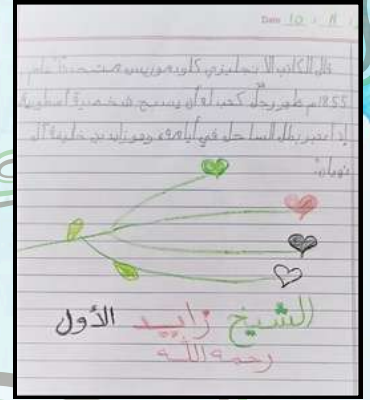 Date 10 / 8 /
قال الكاتب الانجليزي كلويموريس متحدثا عام
1855م ظهر رجل كتب له أن يسبح شخصية أسطورية
إذ اعتبر بطل الساحل في أيامه، وهو زايد بن خليفة آل
نهيان"
الشيخ زايد الأول
رحمه الله